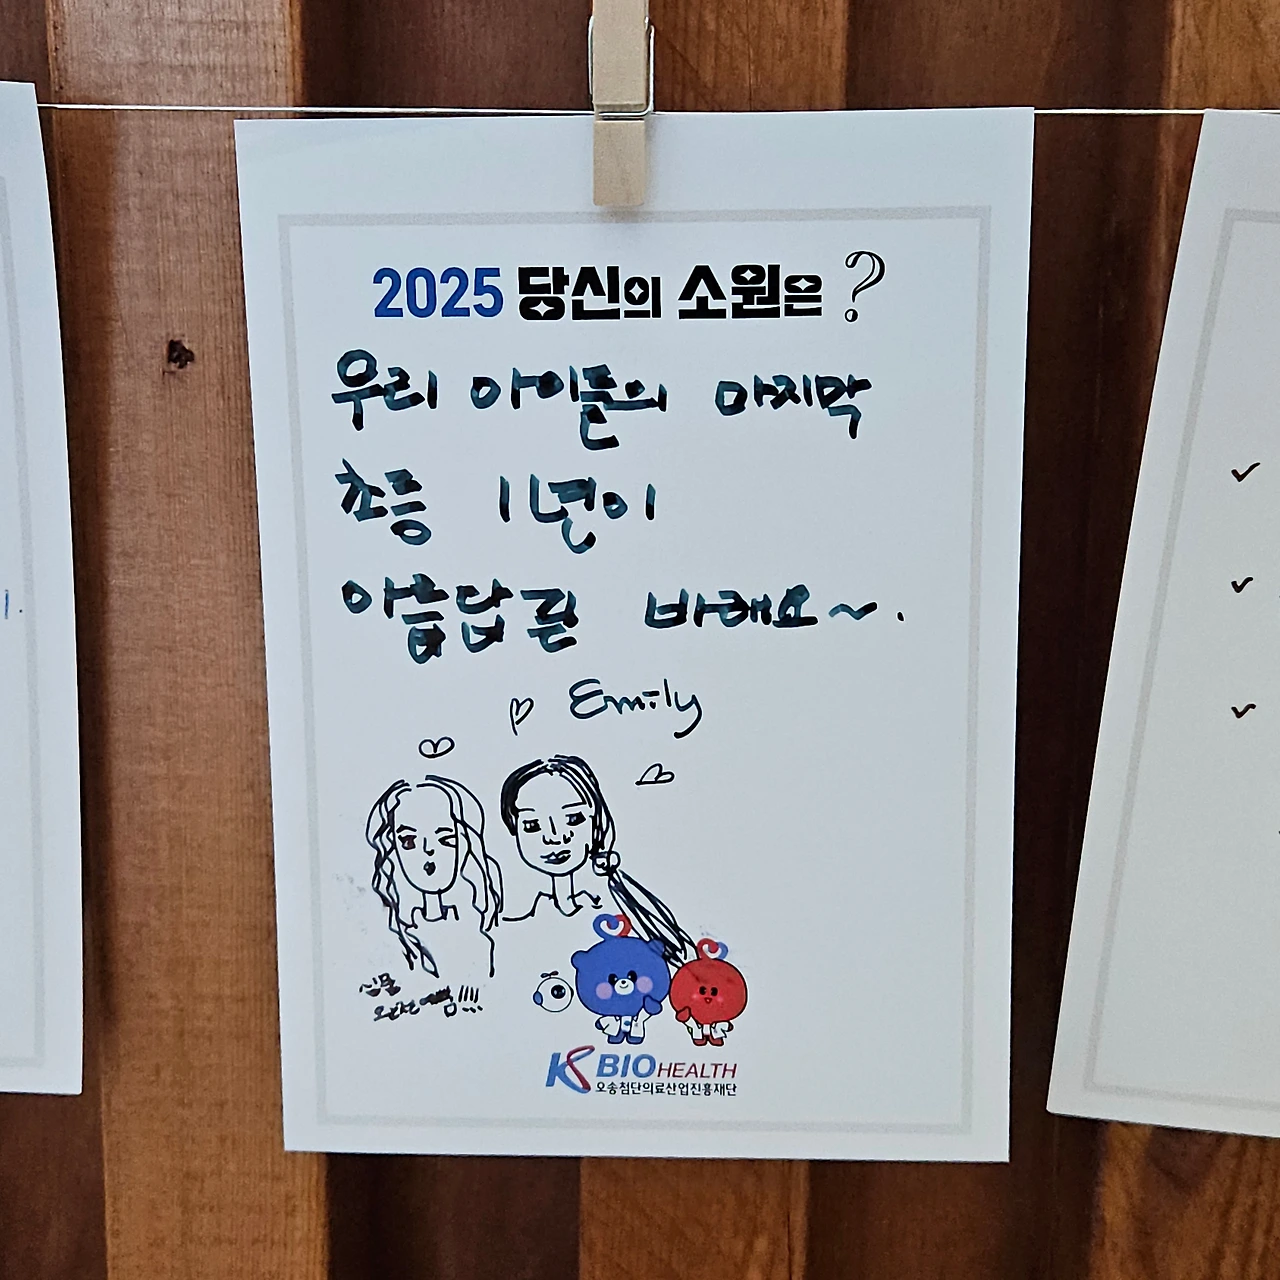 2025 당신의 소원은?
우리 아이들의 마지막
초등 1년이
아름답길 바래요~.
Emily
실물
완전예쁨!!!!
K BIO HEALTH
오송첨단의료산업진흥재단